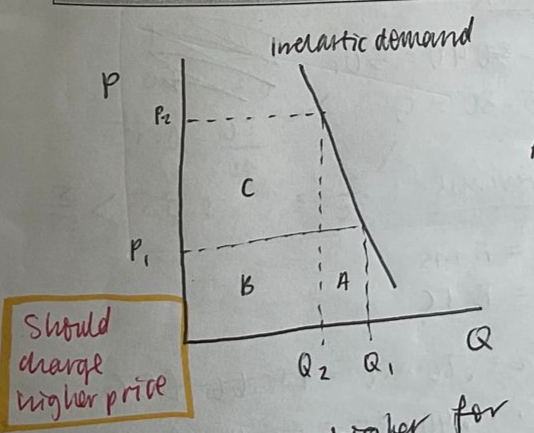 inelastic demand
P
P2
C
P1
B
A
Should
charge
higher price
Q2
Q1
Q
for